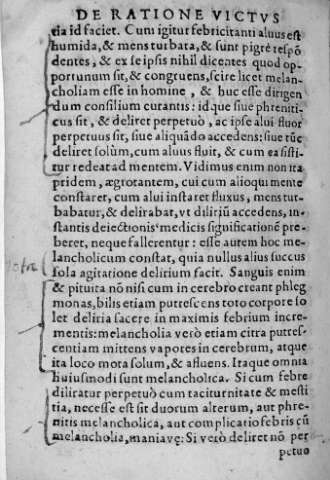 DE RATIONE VICTVS
tia id faciet. Cum igitur febricitanti aluus est
humida, & mens turbata, & sunt pigrè respõ
dentes, & ex se ipsis nihil dicentes quod op-
portunum sit, & congruens, scire licet melan-
choliam esse in homine, & huc esse dirigen
dum consilium curantis: id que siue phreniti-
cus sit, & deliret perpetuò, ac ipse alui fluor
perpetuus sit, siue aliquãdo accedens: siue tũc
deliret solùm, cum aluus fluit, & cum ea sisti-
tur redeat ad mentem. Vidimus enim non ita
pridem, ægrotantem, cui cum alioqui mente
constaret, cum alui instaret fluxus, mens tur-
babatur, & delirabat, vt diliriũ accedens, in-
stantis deiectionis medicis significationẽ præ-
beret, neque fallerentur: esse autem hoc me-
lancholicum constat, quia nullus alius succus
sola agitatione delirium facit. Sanguis enim
& pituita nõ nisi cum in cerebro creant phleg
monas, bilis etiam putrescens toto corpore so
let deliria facere in maximis febrium incre-
mentis: melancholia verò etiam citra putres-
centiam mittens vapores in cerebrum, atque
ita loco mota solum, & affluens. Itaque omnia
huiusmodi sunt melancholica. Si cum febre
diliratur perpetuò cum taciturnitate & mesti
tia, necesse est sit duorum alterum, aut phre-
nitis melancholica, aut complicatio febris cũ
melancholia, mania vę: Si verò deliret nõ per
petuo